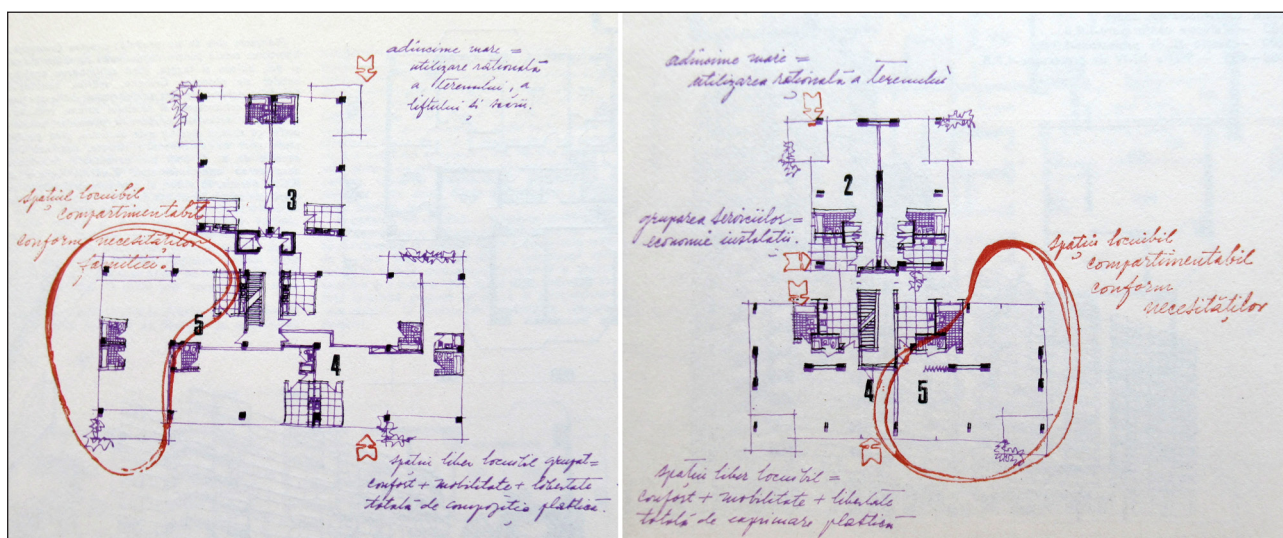 adîncime mare =
utilizare rațională
a terenului, a
liftului și scării.
3
spațiul locuibil
compartimentabil
conform necesităților
familiei.
5
4
spațiu liber locuibil grupat =
confort + mobilitate + libertate
totală de compoziția plastică.
adîncime mare =
utilizarea rațională a terenului
2
gruparea serviciilor =
economie instalații.
spațiu locuibil
compartimentabil
conform
necesităților
4 5
spațiu liber locuibil =
confort + mobilitate + libertate
totală de exprimare plastică